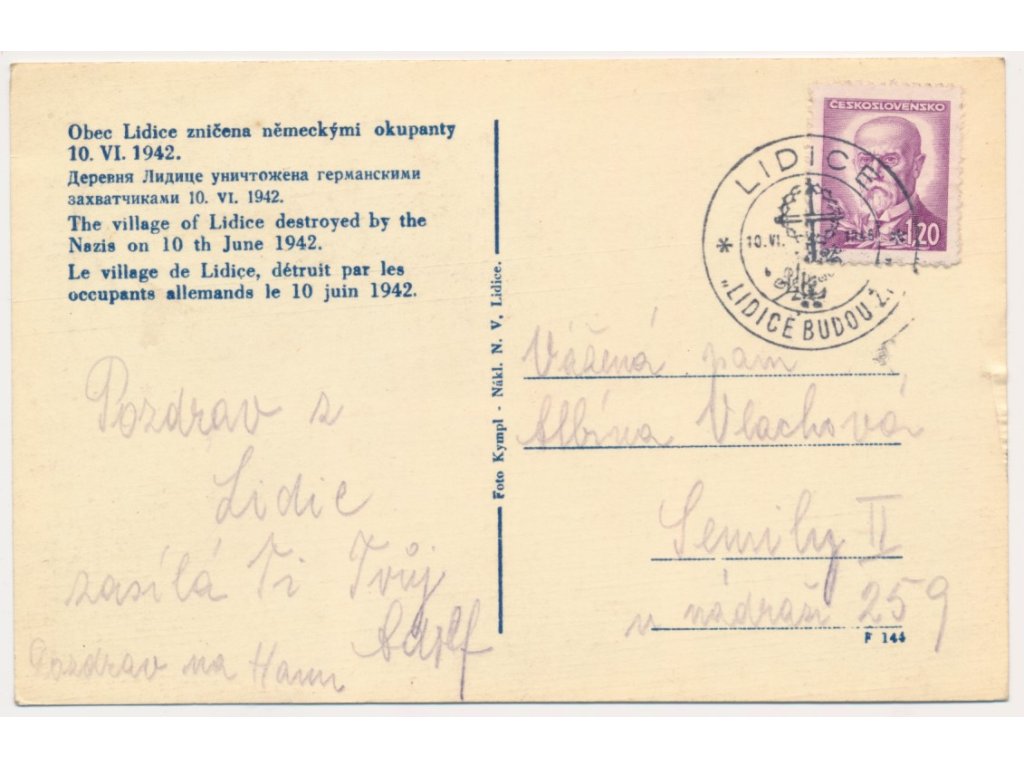 Obec Lidice zničena německými okupanty
10. VI. 1942.
Деревня Лидице уничтожена германскими
захватчиками 10. VI. 1942.
The village of Lidice destroyed by the
Nazis on 10 th June 1942.
Le village de Lidiçe, détruit par les
occupants allemands le 10 juin 1942.
Pozdrav z
Lidic
zasílá Ti Tvůj
Adolf
Pozdrav na Hanu
Foto Kympl - Nákl. N. V, Lidice.
ČESKOSLOVENSKO
1,20
LIDICE
* 10.VI.
„LIDICE BUDOU Ž
Vážená paní
Albína Vlachová
Semily II
u nádraží 259
F 144